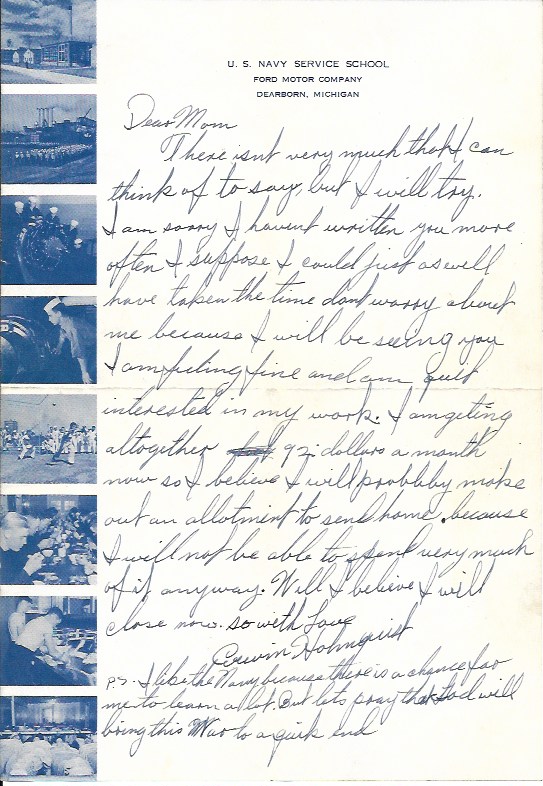 U. S. NAVY SERVICE SCHOOL
FORD MOTOR COMPANY
DEARBORN, MICHIGAN
Dear Mom
There isnt very much that I can
think of to say, but I will try.
I am sorry I havent written you more
often I suppose I could just as well
have taken the time dont worry about
me because I will be seeing you
I am feeling fine and am quit
interested in my work. I am geting
altogether 92 dollars a month
now so I believe I will probbly make
out an allotment to send home. because
I will not be able to spend very much
of it anyway. Will I believe I will
close now. so with Love
Erwin Holmquist
p.s. I like the Navy because there is a chance for
me to learn a lot. But lets pray that God will
bring this War to a quik end